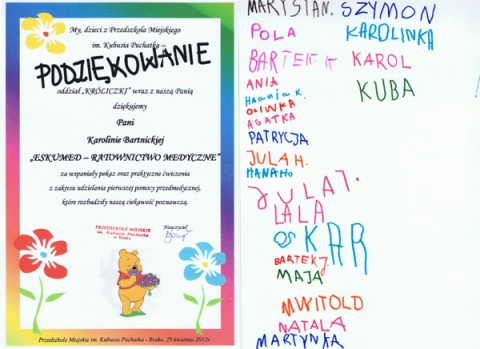 My, dzieci z Przedszkola Miejskiego
im. Kubusia Puchatka –
PODZIĘKOWANIE
oddział „KRÓLICZKI” wraz z naszą Panią
dziękujemy
Pani
Karolinie Bartnickiej
„ESKUMED – RATOWNICTWO MEDYCZNE”
za wspaniały pokaz oraz praktyczne ćwiczenia
z zakresu udzielania pierwszej pomocy przedmedycznej,
które rozbudziły naszą ciekawość poznawczą.
PRZEDSZKOLE MIEJSKIE
im. Kubusia Puchatka
w Resku
Nauczyciel
Przedszkole Miejskie im. Kubusia Puchatka - Resko, 25 kwietnia 2012r.
MARYSIAN.
SZYMON
POLA
KAROLINKA
BARTEK K
KAROL
ANIA
KUBA
Hania K.
OLIWKA
AGATKA
PATRYCJA
JULA H.
HANAHO
JULA J.
LALA
OSKAR
BARTEK J.
MAJA
MWITOLD
NATALA
MARTYNKA